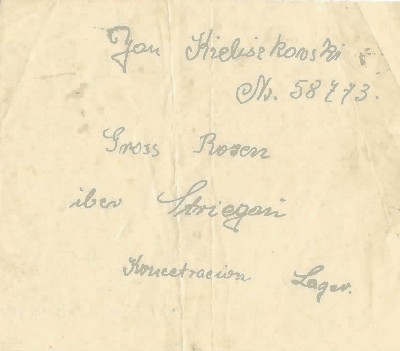 Jan Kieliszkowski
Nr. 58773.
Gross Rosen
iber Striegau
Koncetracion Lager.